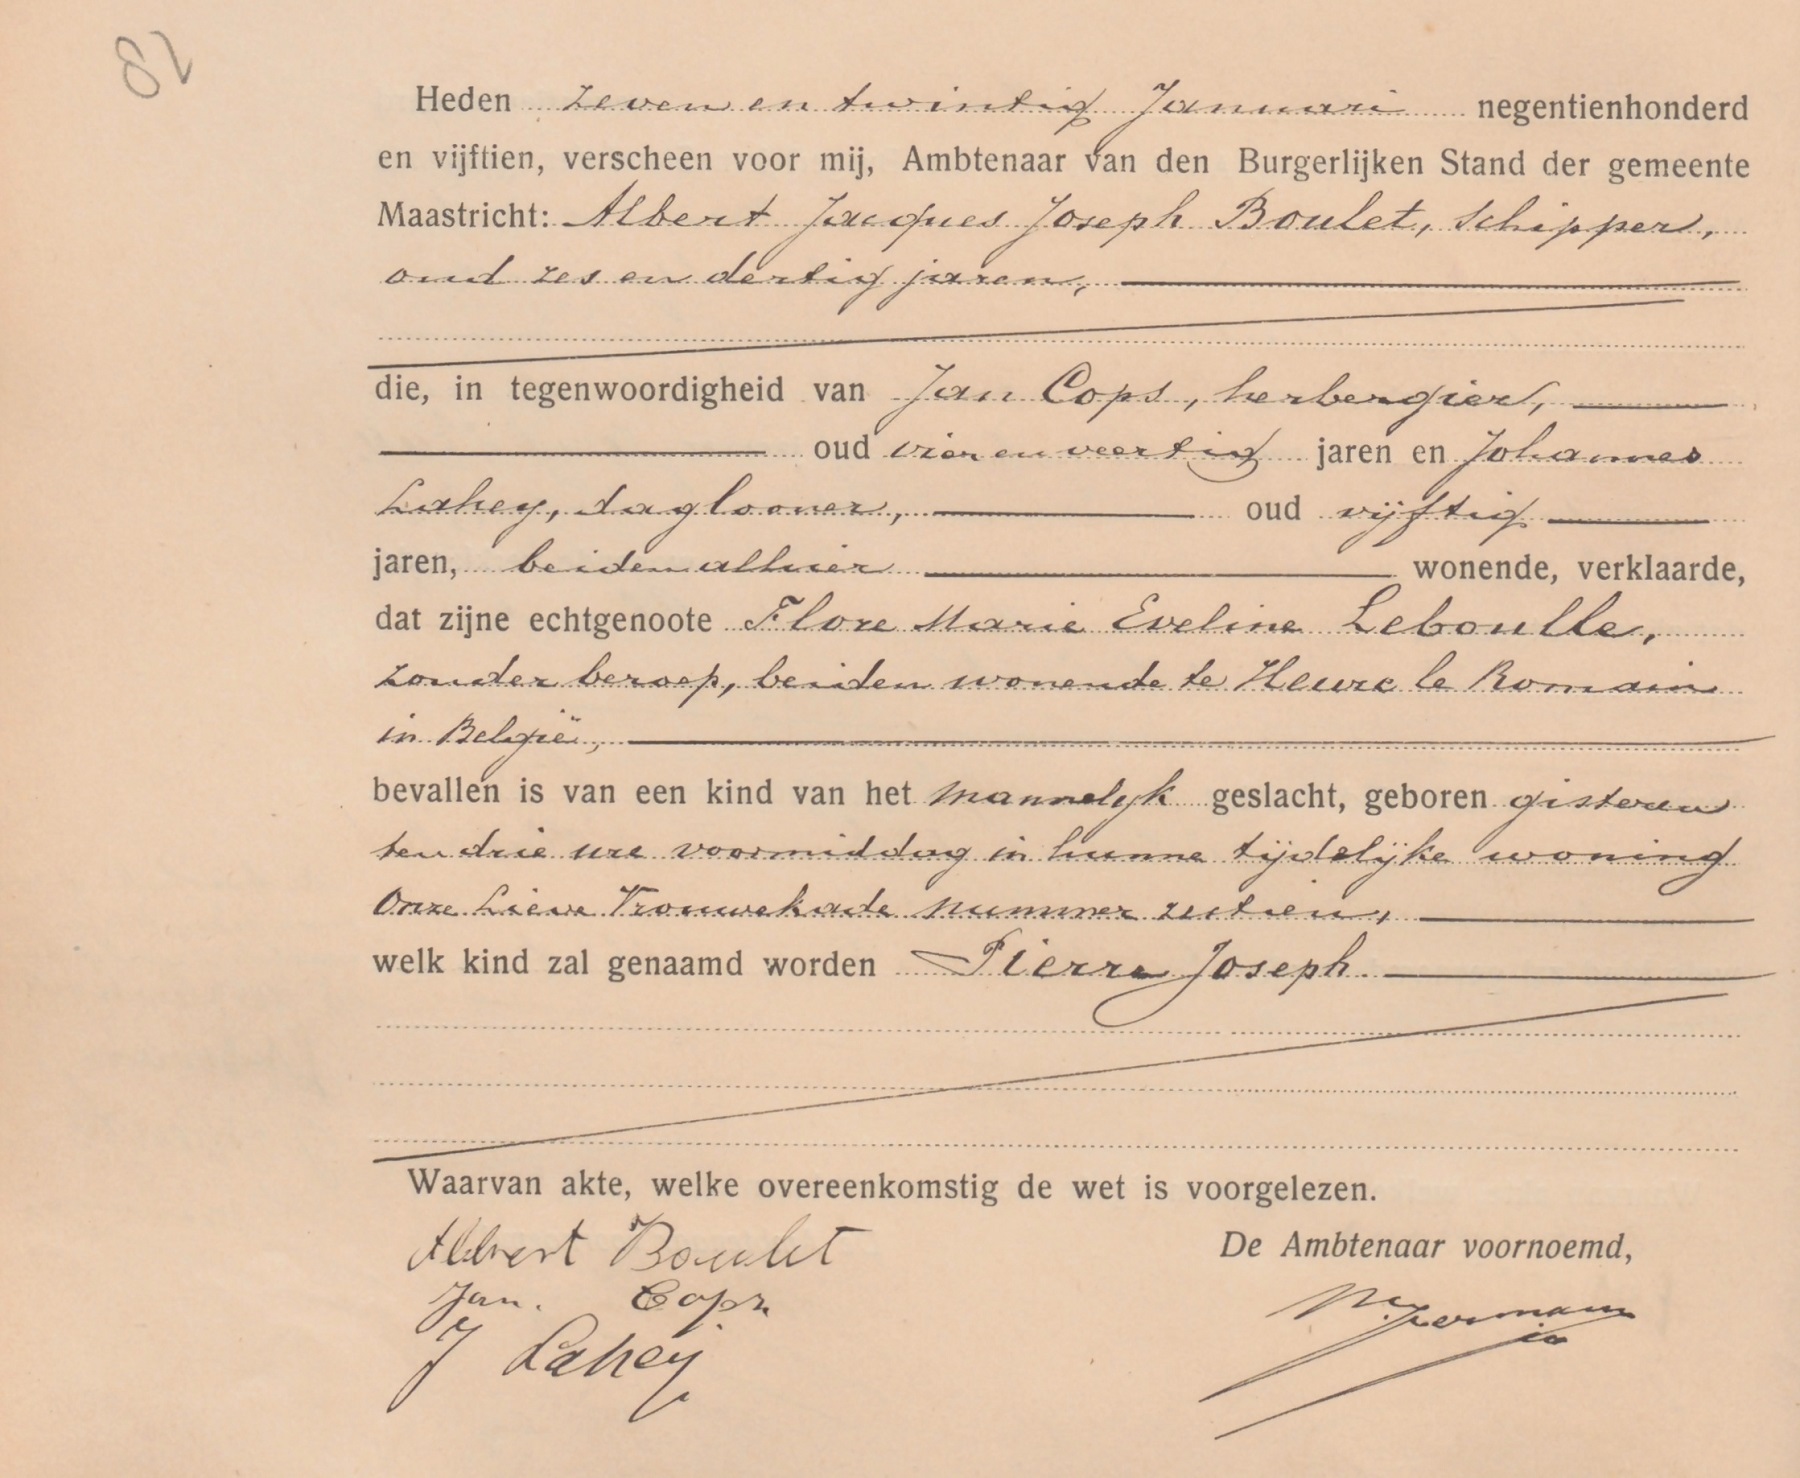 82
Heden zeven en twintig Januari negentienhonderd
en vijftien, verscheen voor mij, Ambtenaar van den Burgerlijken Stand der gemeente
Maastricht: Albert Jacques Joseph Boulet, schipper,
oud zes en dertig jaren,
die, in tegenwoordigheid van Jan Cops, herbergier,
oud vier en veertig jaren en Johannes
Lahey, daglooner, oud vijftig
jaren, beiden alhier wonende, verklaarde,
dat zijne echtgenoote Flore Marie Eveline Leboulle,
zonder beroep, beiden wonende te Heure le Romain
in België,
bevallen is van een kind van het mannelijk geslacht, geboren gisteren
ten drie ure voormiddag in hunne tijdelijke woning
Onze Lieve Vrouwekade nummer zestien,
welk kind zal genaamd worden Pierre Joseph
Waarvan akte, welke overeenkomstig de wet is voorgelezen.
Albert Boulet
De Ambtenaar voornoemd,
Jan. Cops
J Lahey